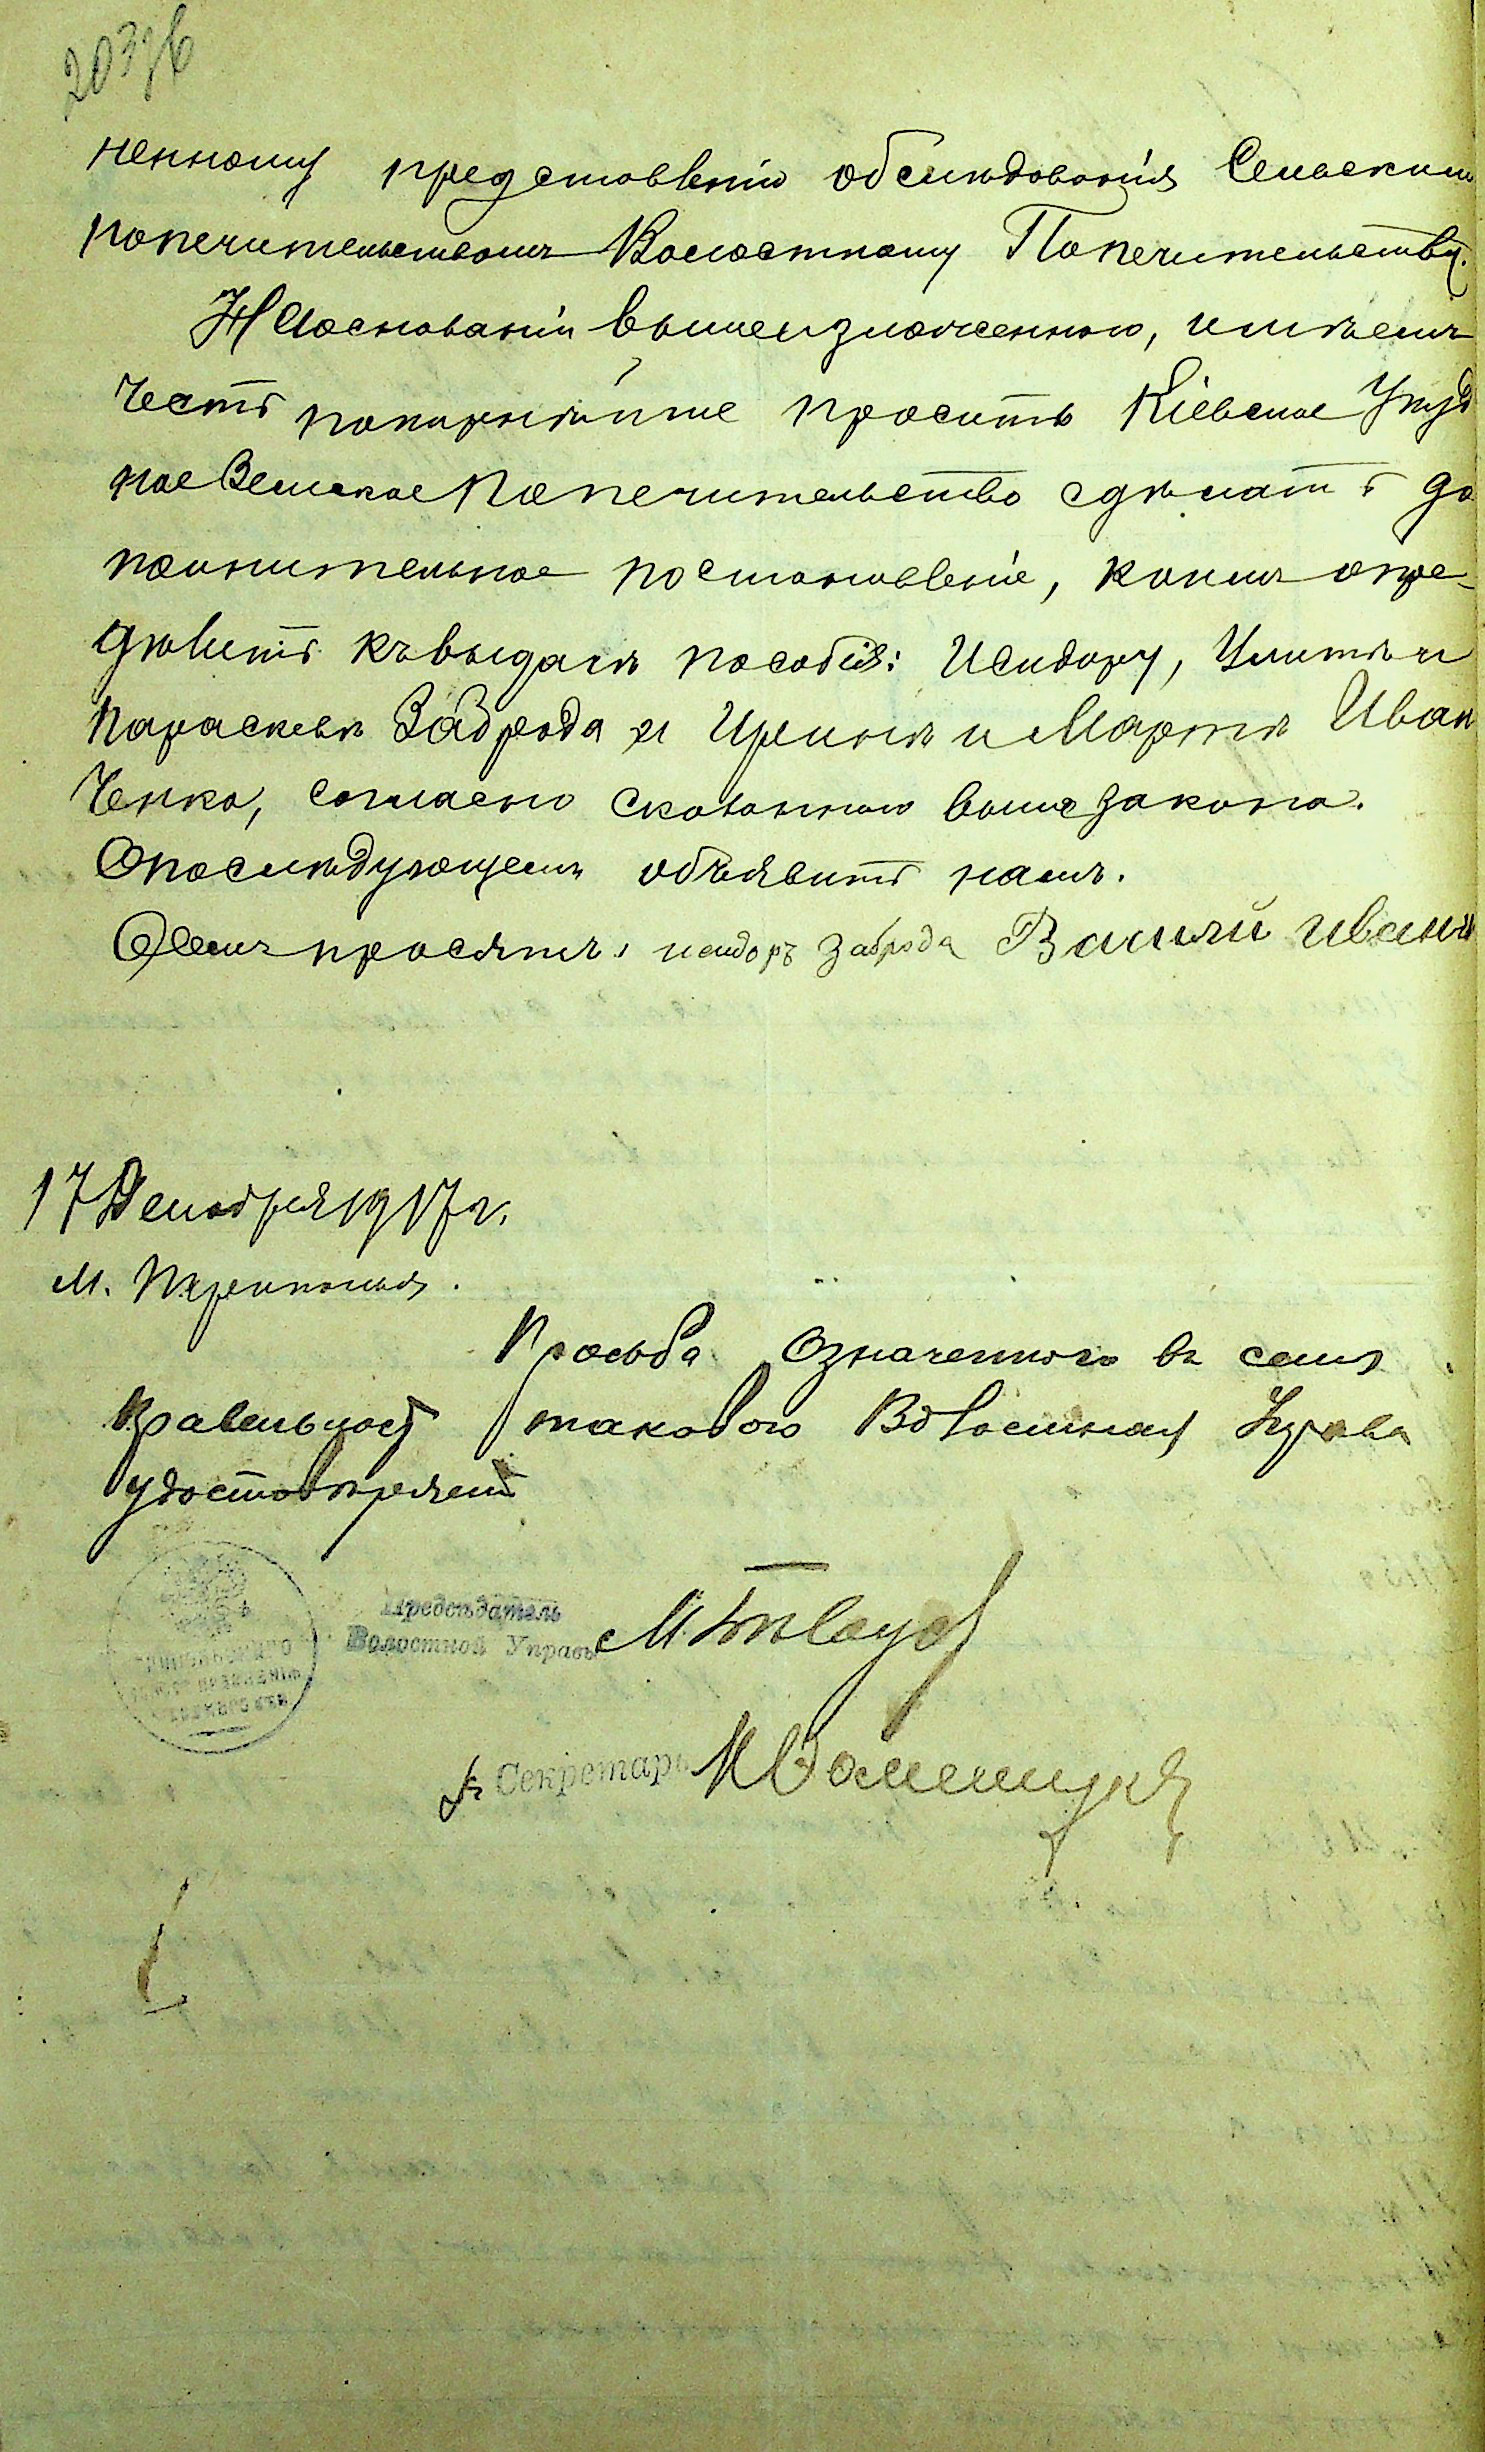 203 об
ненному представленію обслѣдованія Сельским
попечительствомъ Волостному Попечительству.
На основаніи вышеизложенного, имѣемъ
честь покорнѣйше просить Кіевское Уѣзд
ное Земское Попечительство сдѣлать до
полнительное постановленіе, коимъ опре-
дѣлить къ выдачѣ пособія: Исидору, Улитѣ и
Параскевѣ Заброда и Иринѣ и Марѳѣ Иван
ченко, согласно сказанного выше закона.
О послѣдующемъ объявить намъ.
О семъ просятъ: исидоръ заброда Василий иванч
17 Декабря 1917 г.
М.
Просьба Означенного въ семъ
правельност такового Волостная Управа
удостовѣряет
Предсѣдатель
Волостной Управы
Секретарь